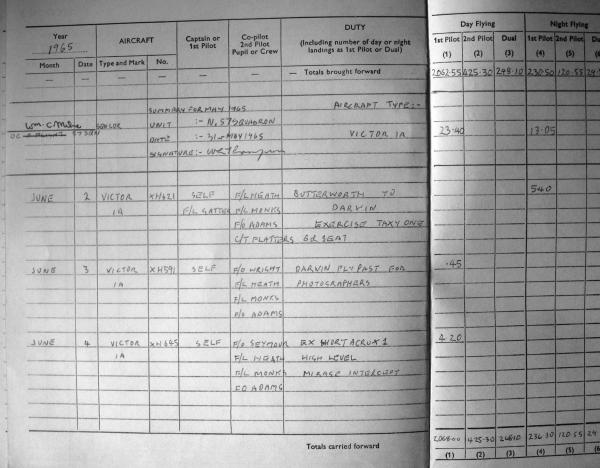 Year
1965
AIRCRAFT
Captain or
1st Pilot
Co-pilot
2nd Pilot
Pupil or Crew
DUTY
(Including number of day or night
landings as 1st Pilot or Dual)
Day Flying
Night Flying
Month Date Type and Mark No.
1st Pilot 2nd Pilot Dual 1st Pilot 2nd Pilot
(1) (2) (3) (4) (5) (6
— — — — — — — Totals brought forward
2062·55 425·30 248·10 230·50 120·55
SUMMARY FOR MAY 1965 AIRCRAFT TYPE:-
UNIT :- No. 57 SQUADRON VICTOR 1A 23·40 13·05
OC 57 SQN
DATE :- 31st MAY 1965
SIGNATURE:-
JUNE 2 VICTOR XH621 SELF F/L HEATH BUTTERWORTH TO 5·40
1A F/L F/L MONKS DARWIN
F/O ADAMS EXERCISE TAXY ONE
C/T PLATTERS 6th SEAT
JUNE 3 VICTOR XH591 SELF F/O WRIGHT DARWIN FLYPAST FOR ·45
1A F/L HEATH PHOTOGRAPHERS
F/L MONKS
F/O ADAMS
JUNE 4 VICTOR XH645 SELF F/O SEYMOUR EX SHORT ACRUX 1 4·20
1A F/L HEATH HIGH LEVEL
F/L MONKS MIRAGE INTERCEPT
F/O ADAMS
Totals carried forward
2068·00 425·30 248·10 236·30 120·55
(1) (2) (3) (4) (5) (6